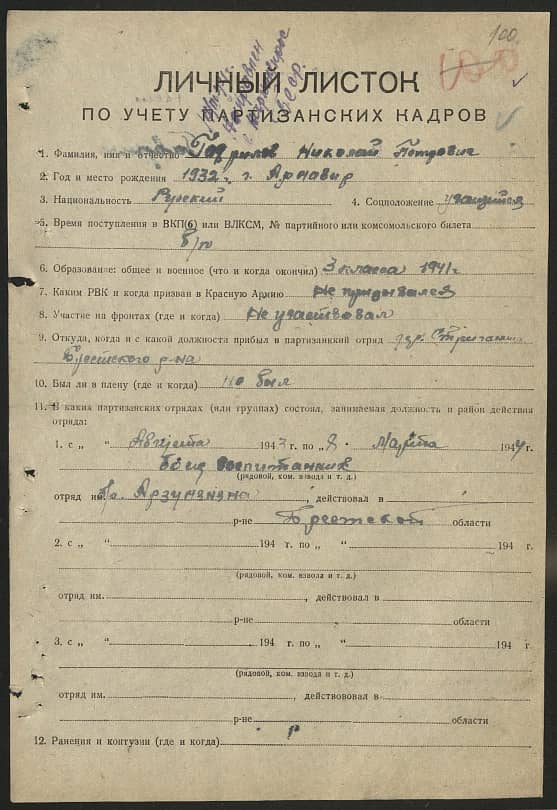 100.
ЛИЧНЫЙ ЛИСТОК
ПО УЧЕТУ ПАРТИЗАНСКИХ КАДРОВ
1. Фамилия, имя и отчество Гаврилов Николай Петрович
2. Год и место рождения 1932 г. г. Армавир
3. Национальность Русский 4. Соцположение учащийся
5. Время поступления в ВКП(б) или ВЛКСМ, № партийного или комсомольского билета
б/п
6. Образование: общее и военное (что и когда окончил) 3 класса 1941 г
7. Каким РВК и когда призван в Красную Армию Не призывался
8. Участие на фронтах (где и когда) Не участвовал
9. Откуда, когда и с какой должности прибыл в партизанский отряд дер.
Брестского р-на
10. Был ли в плену (где и когда) не был
11. В каких партизанских отрядах (или группах) состоял, занимаемая должность и район действия
отряда:
1. с „ “ Августа 1943 г. по „8“ Марта 1944 г.
боец воспитанник
(рядовой, ком. взвода и т. д.)
отряд им. Арзуманяна, действовал в
р-не Брестской области
2. с „ “ 194 г. по „ “ 194 г.
(рядовой, ком. взвода и т. д.)
отряд им. , действовал в
р-не области
3. с „ “ 194 г. по „ “ 194 г.
(рядовой, ком. взвода и т. д.)
отряд им. , действововал в
р-не области
12. Ранения и контузии (где и когда)